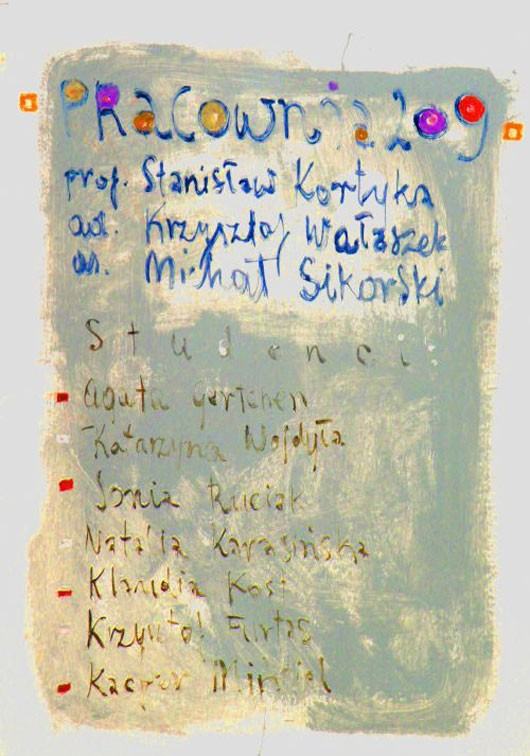 PRacownia 209
prof. Stanisław Kortyka
ad. Krzysztof Wałaszek
as. Michał Sikorski
Studenci
Agata Gertchen
Katarzyna Wojdyła
Sonia Ruciak
Natalia Karasińska
Klaudia Kost
Krzysztof Furtas
Kacper